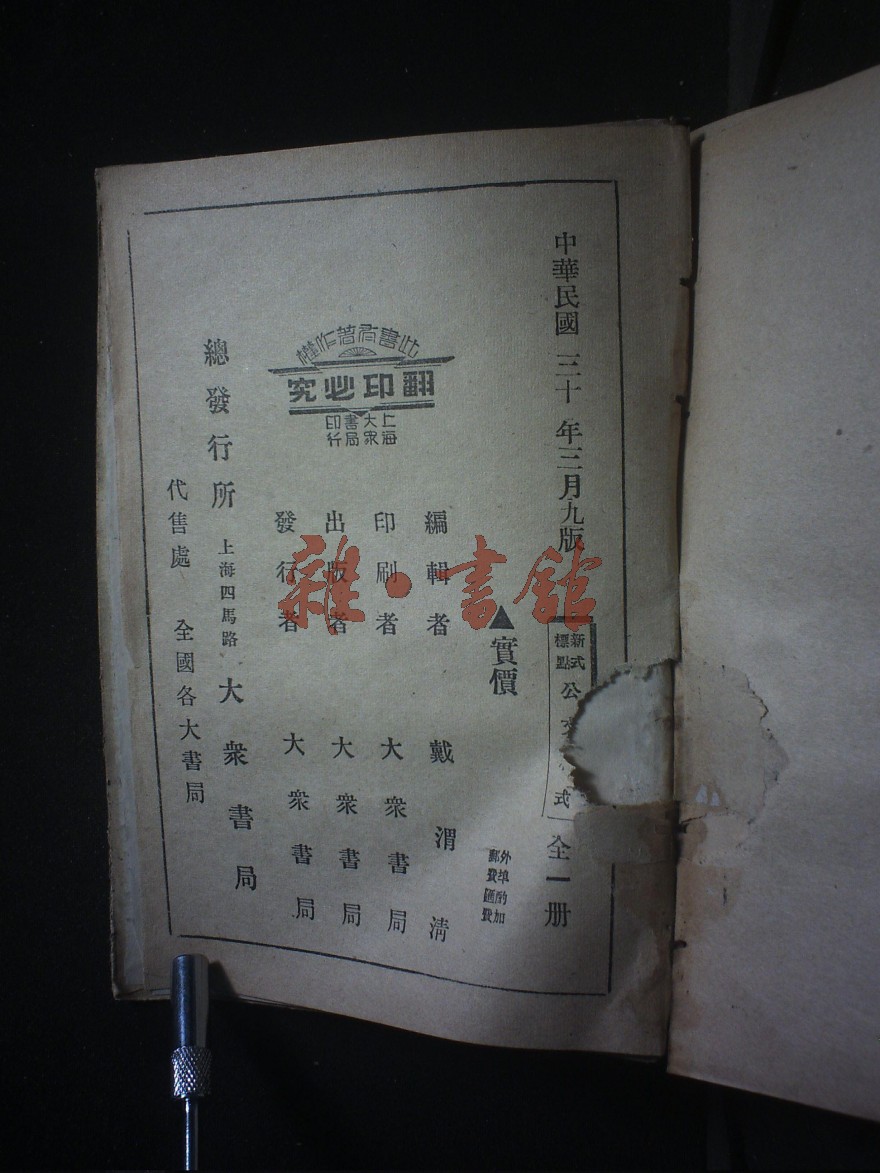 中華民國三十年三月九版
新式標點
公文
式
全一册
▲實價
外埠酌加郵費匯費
編輯者 戴渭清
印刷者 大衆書局
出版者 大衆書局
發行者 大衆書局
此書有著作權
翻印必究
上海大衆書局印行
總發行所 上海四馬路 大衆書局
代售處 全國各大書局
雜·書館